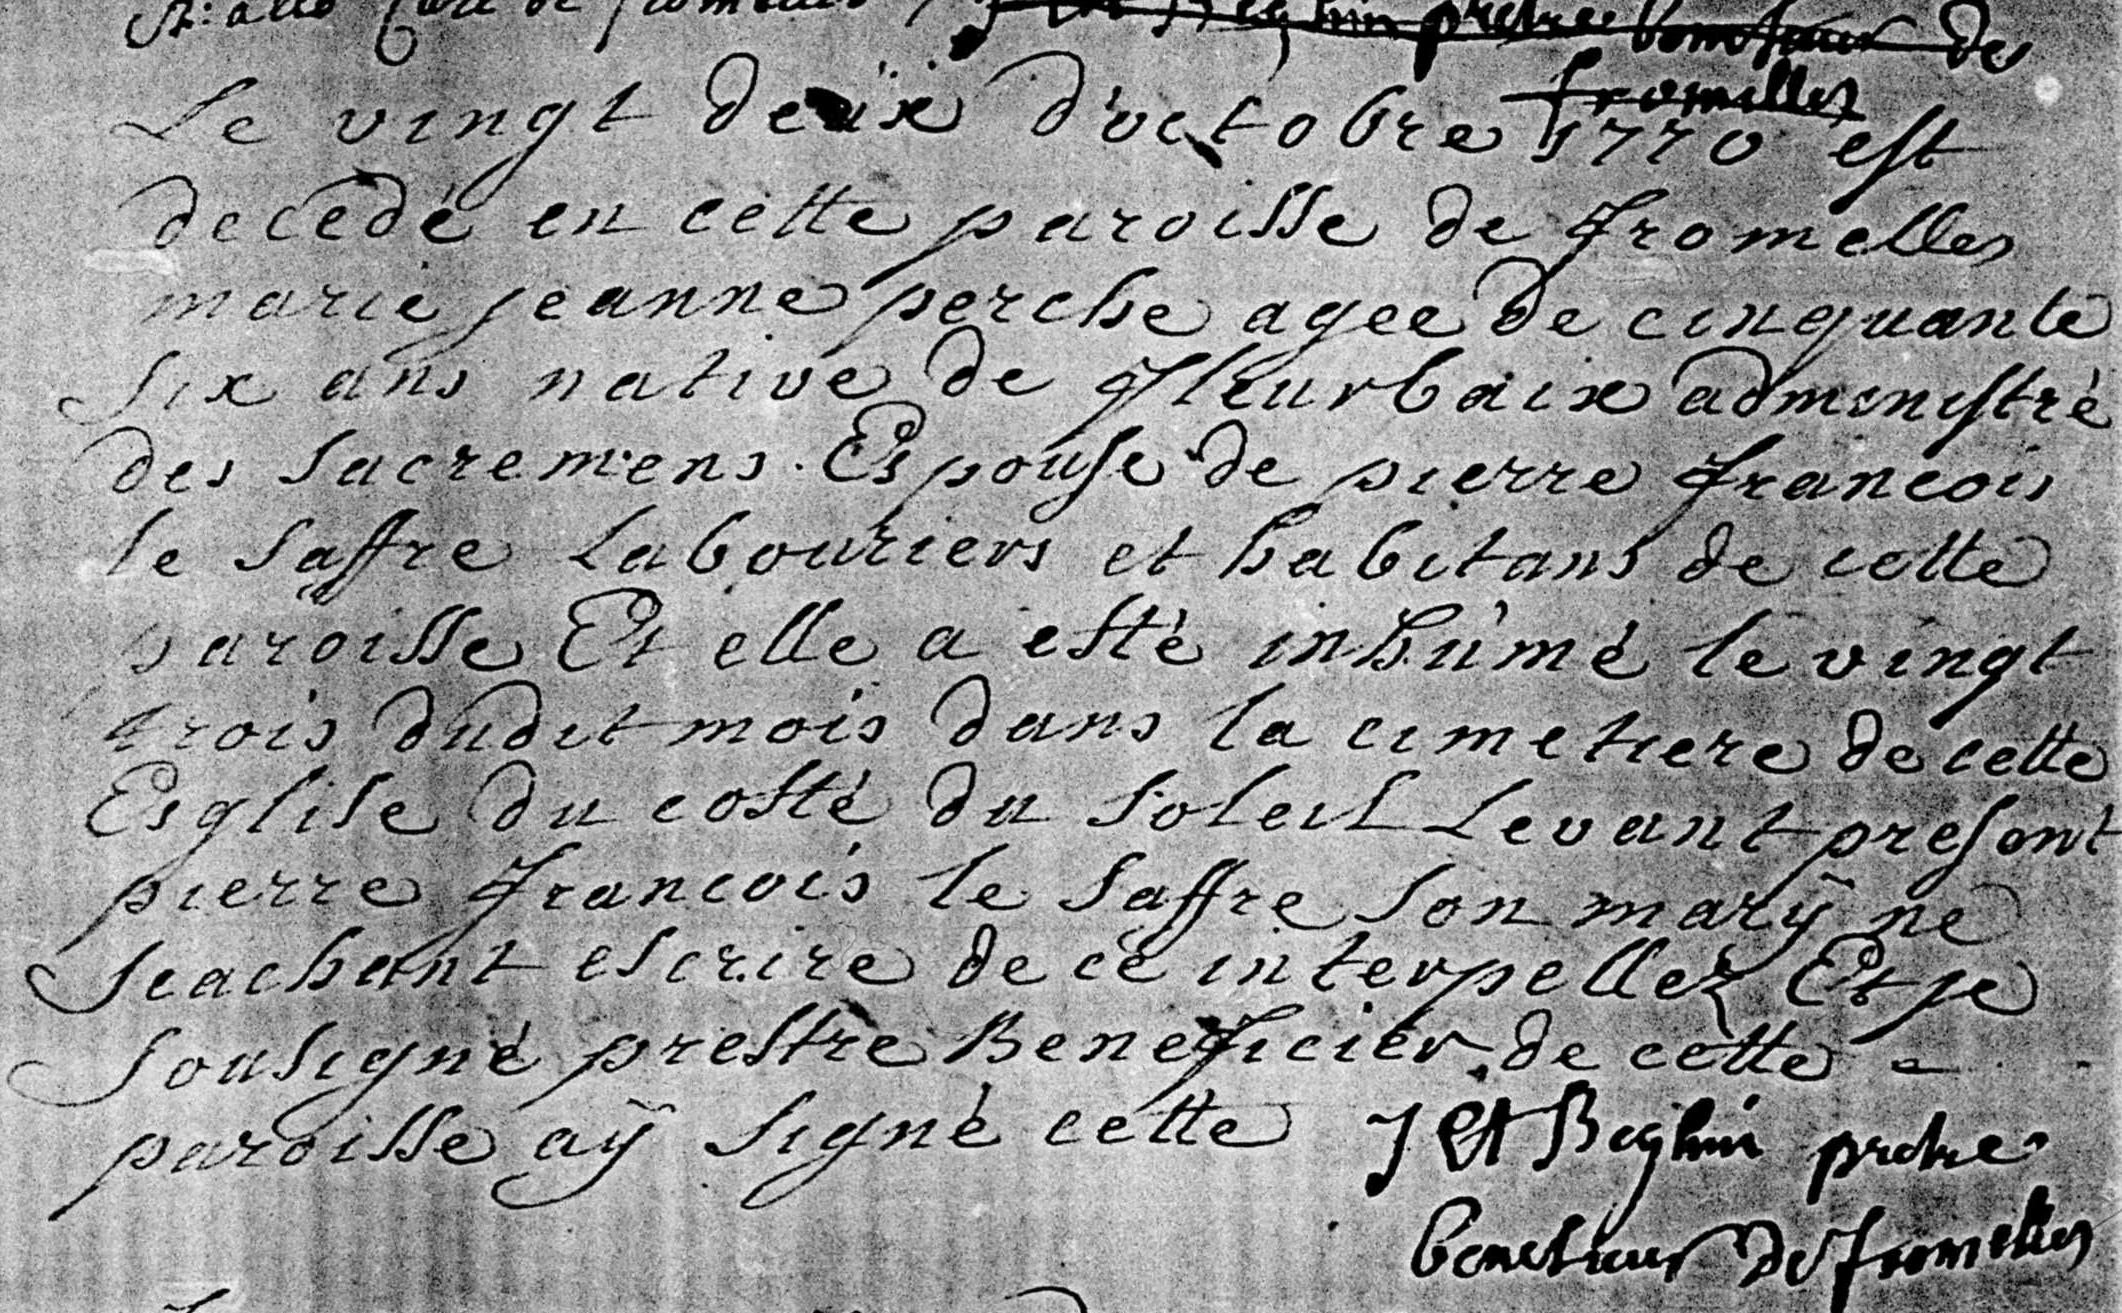 curé de fromelles Beghin pretre des
fromelles
Le vingt deüx d'octobre 1770 est
decedé en cette paroisse de fromelles
marie jeanne perche agee de cinquante
six ans native de fleurbaix administré
des sacremens. Espouse de pierre francois
le saffre Labouriers et habitans de cette
paroisse Et elle a esté inhumé le vingt
trois dudit mois dans la cimetiere de cette
Esglise du costé du soleil Levant present
pierre francois le saffre son marÿ ne
scachant escrire de ce interpellez Et je
sousigné prestre Beneficier de cette
paroisse aÿ signé cette
Beghin pretre
de fromelles